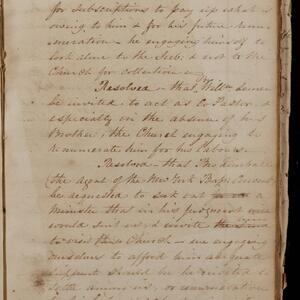 for Subscriptions to pay up what is
owing to him & for his future remu-
neration — he engaging himself to
look alone to the Sub. & not to the
Church for collection
Resolved — that Willm
be invited to act as Co Pastor, &
especially in the absence of his
Brother, the Church engaging to
remunerate him for his labours.
Resolved — that Bro
the agent of the New York Bapt.
be requested to seek out
Minister that in his judgment
would suit us, & invite
to visit this Church — we engaging
ourselves to afford him adequate
support should he be invited to
settle among us, or remuneration